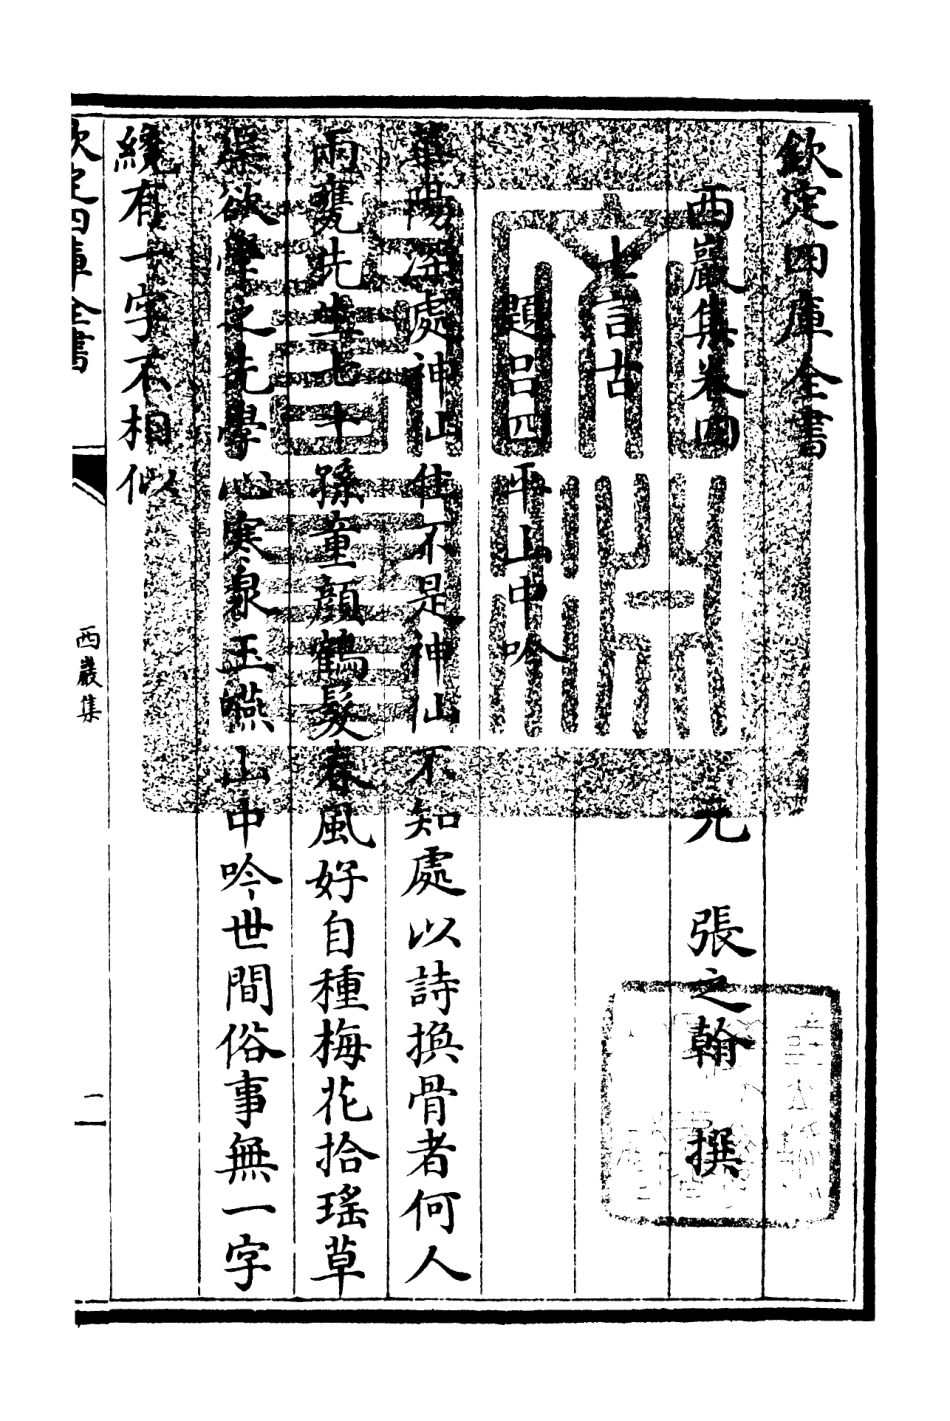 欽定四庫全書
西巖集卷四
元 張之翰 撰
七言古
題吕四平山中吟
華陽深處神仙住不是神仙不知處以詩換骨者何人
兩甕先生七十孫童顔鶴髮春風好自種梅花拾瑤草
渠欲學之先學心寒泉玉嚥山中吟世間俗事無一字
纔有一字不相似
欽定四庫全書
西巖集
一